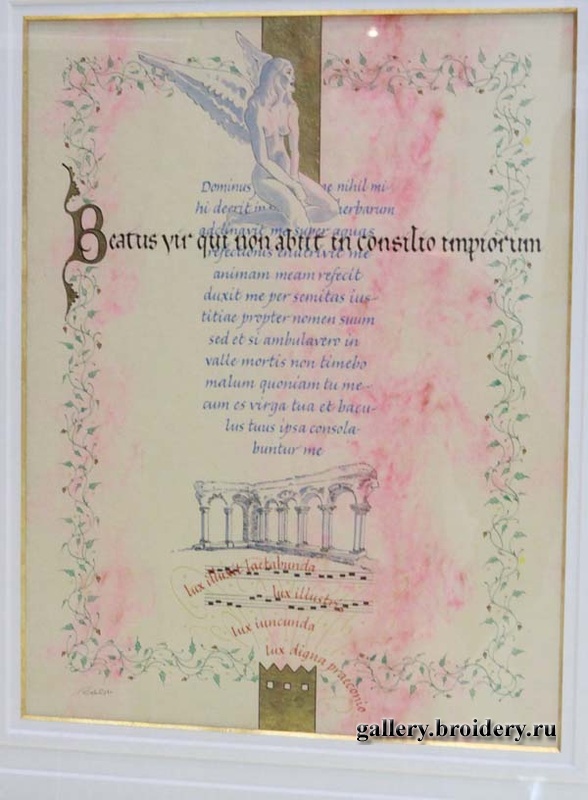 Dominus nihil mi-
hi deerit in herbarum
adclinavit me super aquas
Beatus vir qui non abiit in consilio impiorum
refectionis enutrivit me
animam meam refecit
duxit me per semitas ius-
titiae propter nomen suum
sed et si ambulavero in
valle mortis non timebo
malum quoniam tu me-
cum es virga tua et bacu-
lus tuus ipsa consola-
buntur me
lux illuxit laetabunda
lux illustris
lux iuncunda
lux digna praeconio
gallery.broidery.ru